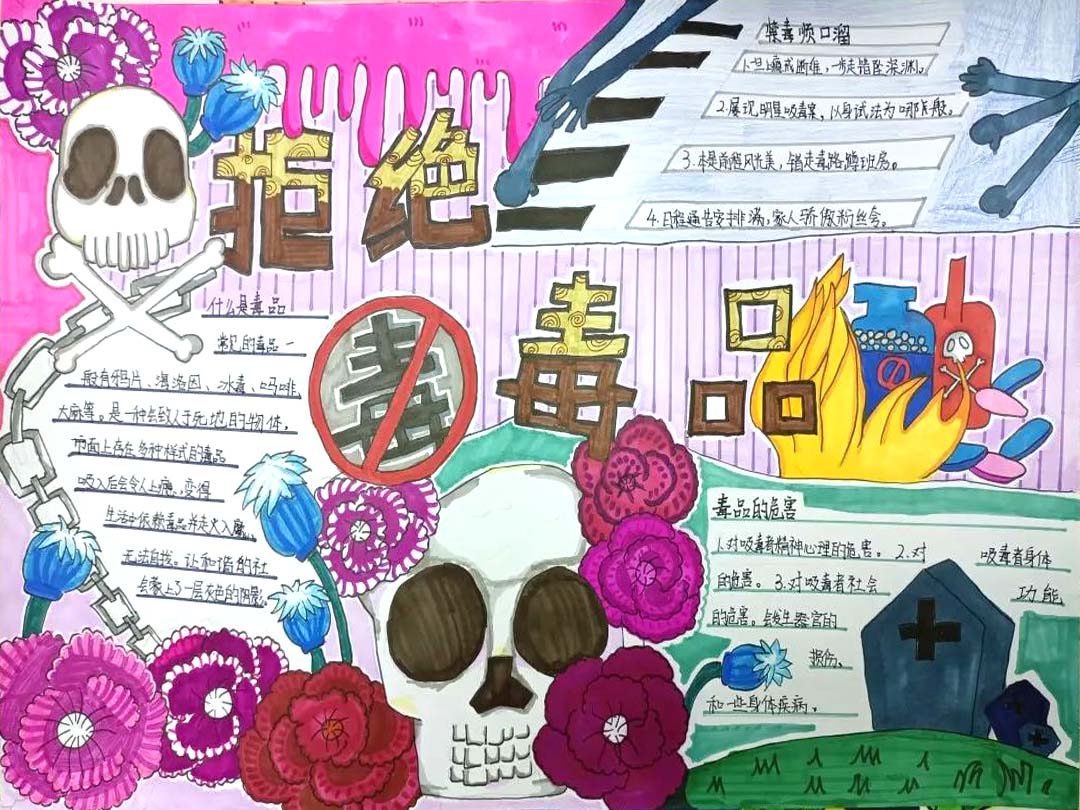 拒绝
毒品
禁毒顺口溜
1.一旦上瘾戒断难，一步走错坠深渊。
2.屡现明星吸毒案，以身试法为哪般。
3.本是前程风光美，错走毒路蹲班房。
4.日程通告安排满，家人骄傲粉丝夸。
什么是毒品
常见的毒品一
般有鸦片、海洛因、冰毒、吗啡、
大麻等。是一种会致人于死地的物体，
市面上存在多种样式的毒品
吸入后会令人上瘾，变得
生活中依赖毒品并走火入魔，
无法自拨。让和谐的社
会蒙上了一层灰色的阴影
毒
毒品的危害
1.对吸毒者精神心理的危害。2.对 吸毒者身体
的危害。3.对吸毒者社会 功能
的危害。会发生器官的
损伤、
和一些身体疾病。